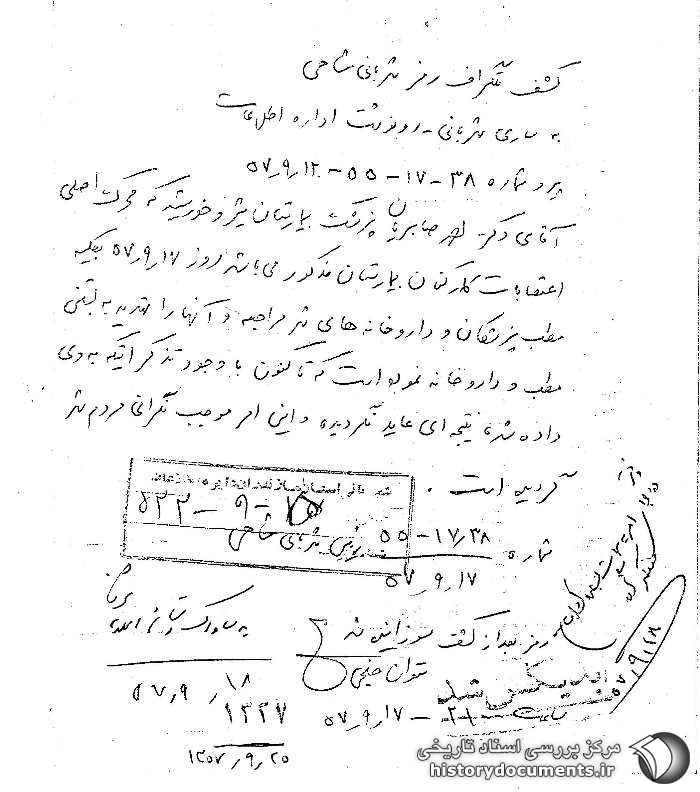 کشف تلگراف رمز شهربانی شاهی
به ساری شهربانی - رونوشت اداره اطلاعات
پیرو شماره ۳۸-۱۷-۵۵-۵۷٫۹٫۱۲
آقای دکتر صابریان پزشک بیمارستان شیر و خورشید که محرک اصلی
اعتصابات کارکنان بیمارستان مذکور می‌باشد روز ۵۷٫۹٫۱۷ بکلیه
مطب پزشکان و داروخانه های شهر مراجعه و آنها را تهدید به بستن
مطب و داروخانه نموده است که تاکنون با وجود تذکراتیکه به وی
داده شده نتیجه ای عاید نگردیده و این امر موجب نگرانی مردم شهر
گردیده است .
شماره ۵۵-۱۷٫۳۸
۵۷٫۹٫۱۷
شهربانی شاهی
۵۳۳-۹-
رمز بعد از کشف سوزانیده شد
ستوان
ساعت ۲۱- ۵۷٫۹٫۱۷
ایندیکس شد
۵۷٫۹٫۱۸
به ساواک
۵۷٫۹٫۱۸
۱۳۲۷
۱۳۵۷٫۹٫۲۵
مرکز بررسی اسناد تاریخی
historydocuments.ir